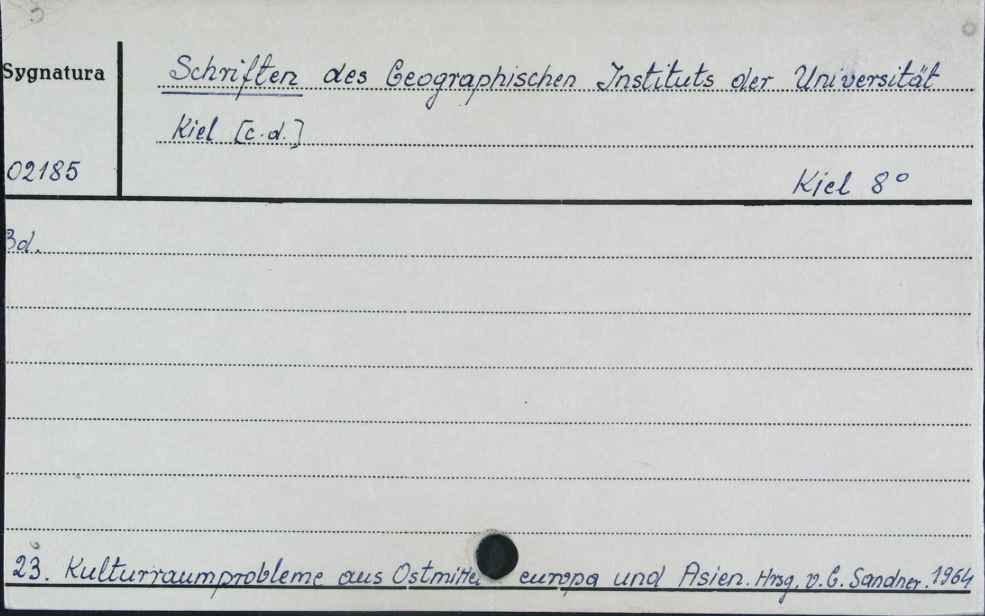 Sygnatura
Schriften des Geographischen Instituts der Universität
Kiel [c.d.]
02185
Kiel 8°
Bd.
23. Kulturraumprobleme aus Ostmitteleuropa und Asien. Hrsg. v. G. Sandner. 1964